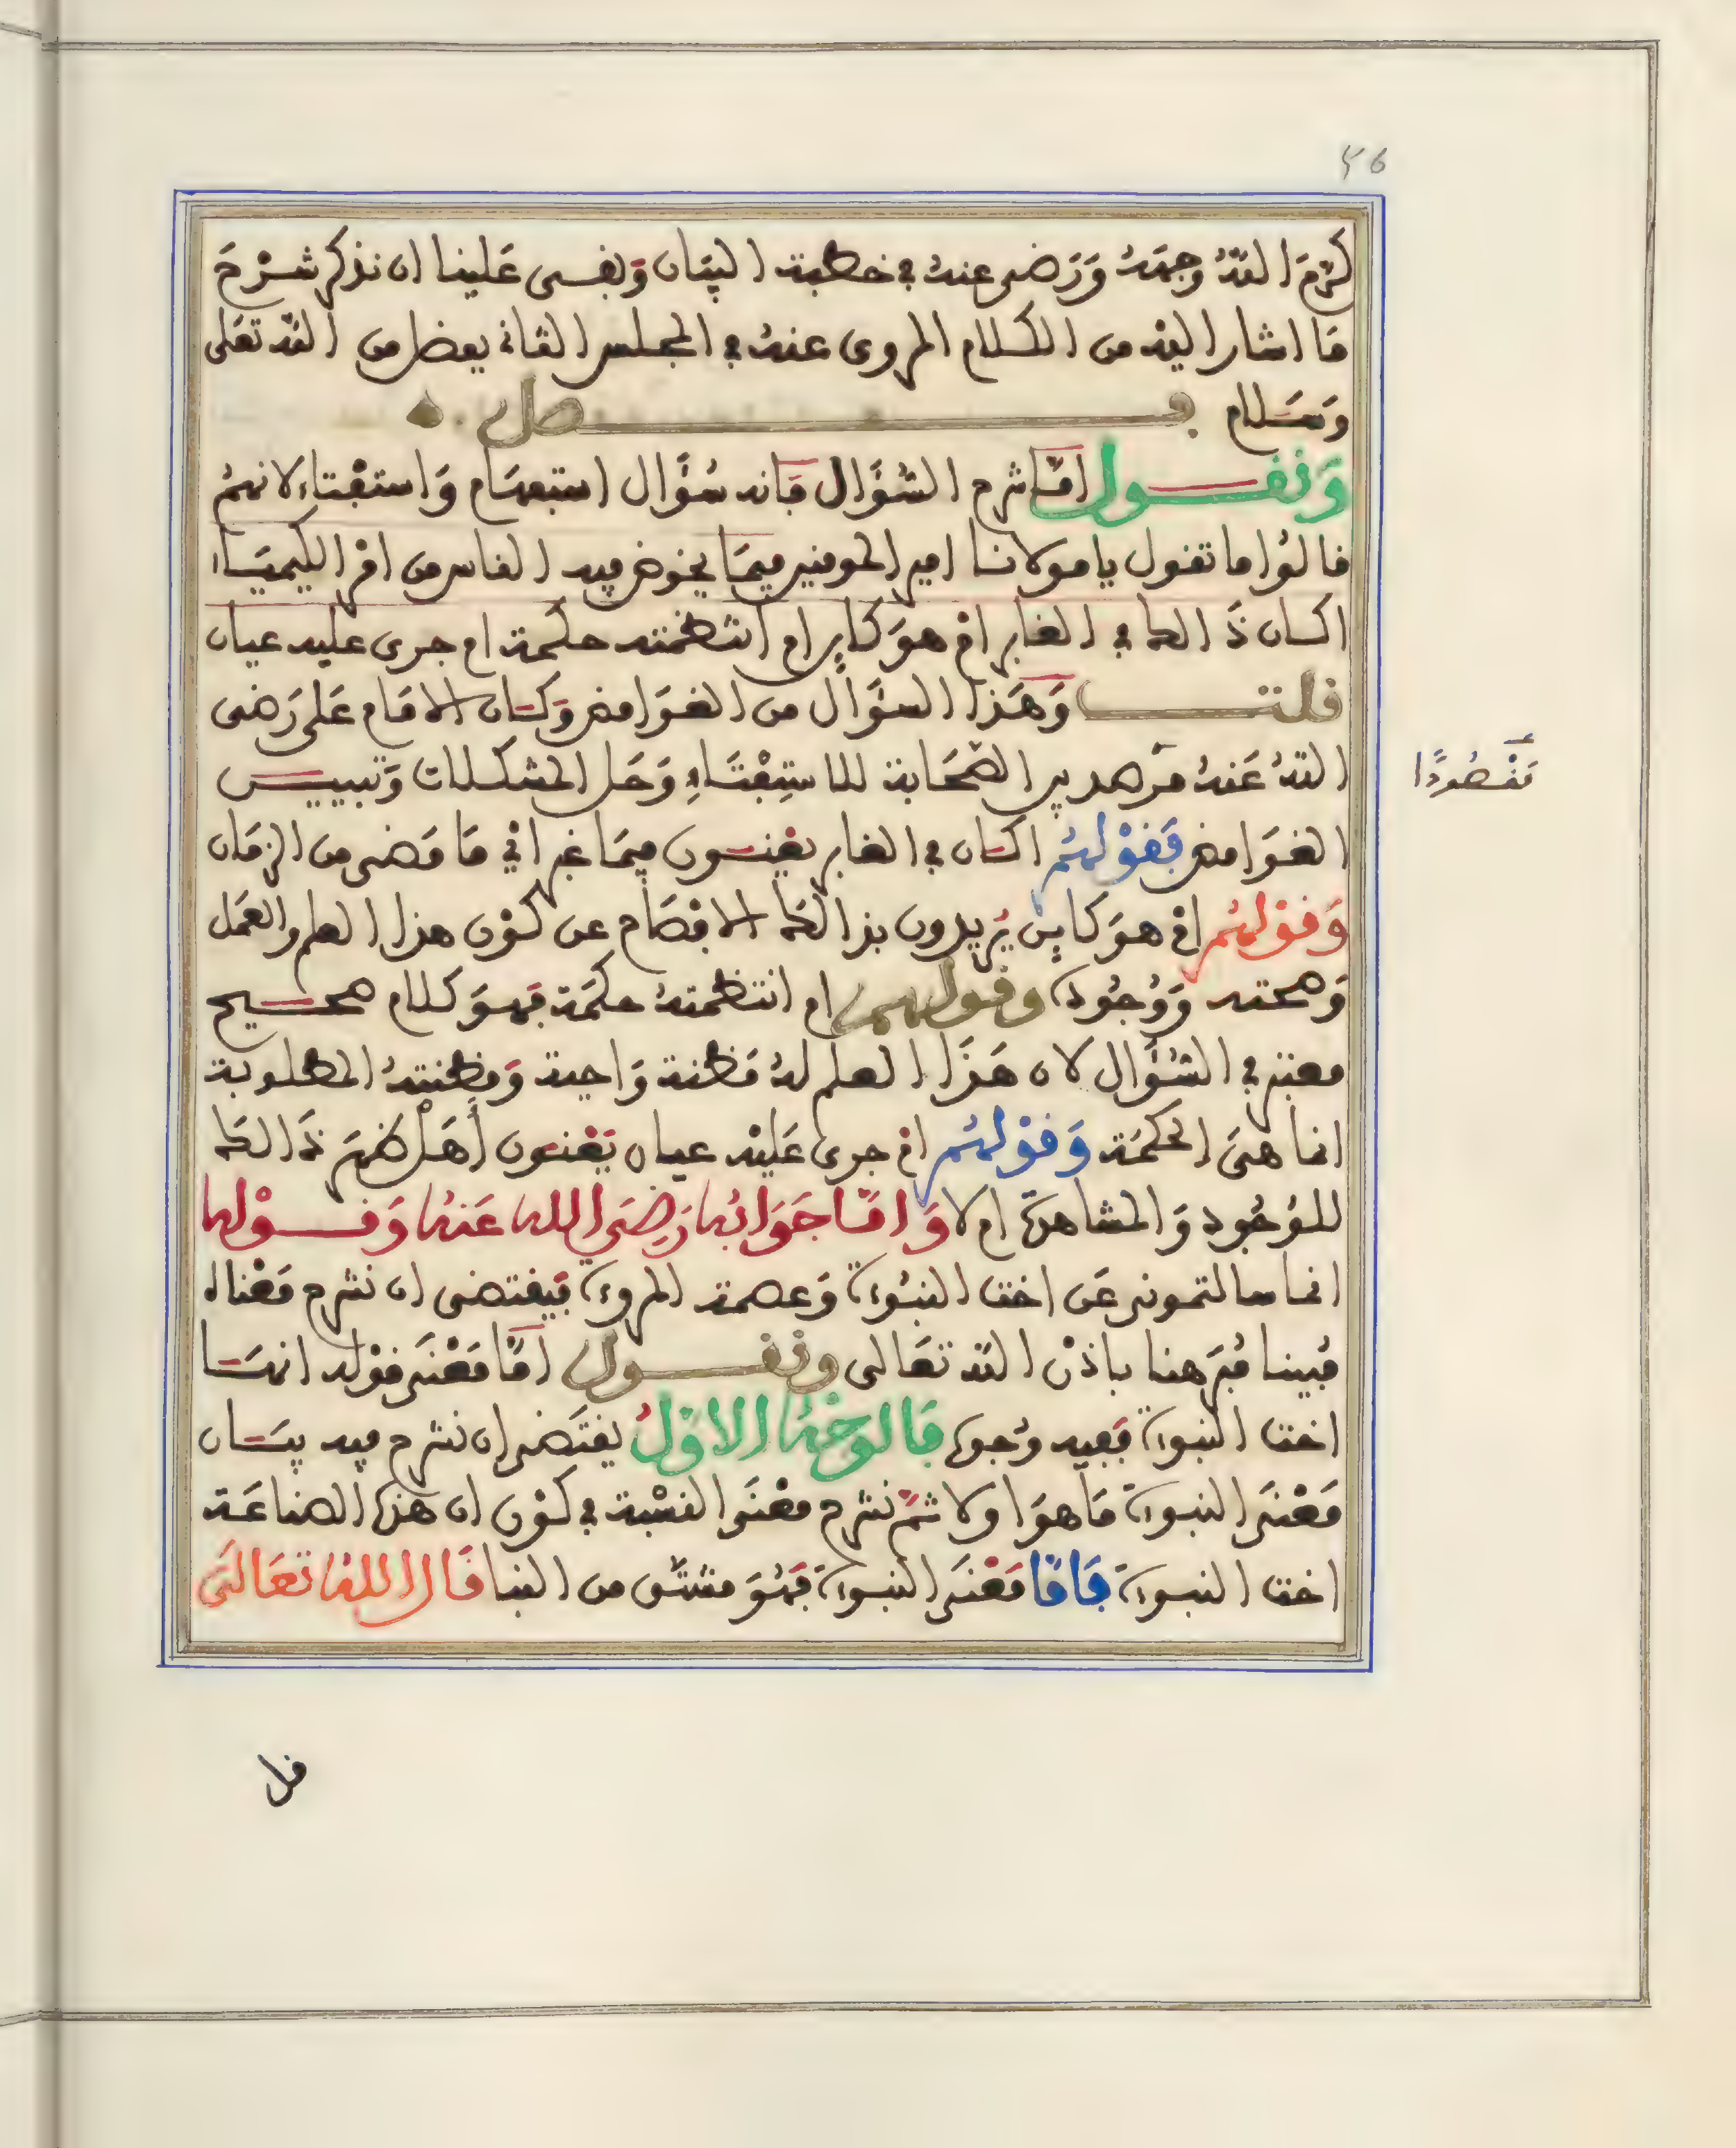 ٢٦
كرّم الله وجهه ورضي عنه في خطبة البيان وبقى علينا ان نذكر شرح
ما اشار اليه من الكلام المروى عنه في المجلس الثاني بفضل من الله تعلى
وسلام فصل
ونقول اما شرح السؤال فانه سؤال استفهام واستفتاء لانهم
قالوا ما تقول يا مولانا امير المومنين فيما يخوض فيه الناس من امر الكيمياء
اكان ذالكم في الغابر ام هو كاين ام انتظمته حكمة ام جرى عليه عيان
قلت وهذا السؤال من الغوامض وكان الامام على رضى
الله عنه من بين الصحابة للاستفتاء وحل المشكلات وتبيين
مقصودا
الغوامض فقولهم اكان في الغابر يعنون فيما غبر اي ما مضى من الزمان
وقولهم ام هو كاين يريدون بذالكم الافصاح عن كون هذا العلم والعمل
وصحته ووجوده وقولهم ام انتظمته حكمة فهو كلام صحيح
معتبر في السؤال لان هذا العلم له مظنة واجبة ومظنته المطلوبة
انما هي الحكمة وقولهم ام جرى عليه عيان يعنون اهل ظهر ذالكم
للوجود والمشاهدة ام لا واما جوابه رضي الله عنه وقوله
انما سالتموني عن اخت النبوءة وعصمة المروءة فيقتضى ان نشرح معناه
فيما قبر هنا باذن الله تعالى ونقول اما معنى قوله انها
اخت النبوءة ففيه وجوه فالوجه الاول يقتضى ان نشرح فيه بيان
معنى النبوءة ما هو اولا ثم نشرح معنى النسبة في كون ان هذه الصناعة
اخت النبوءة فاما معنى النبوءة فهو مشتق من النبا قال الله تعالى
قل